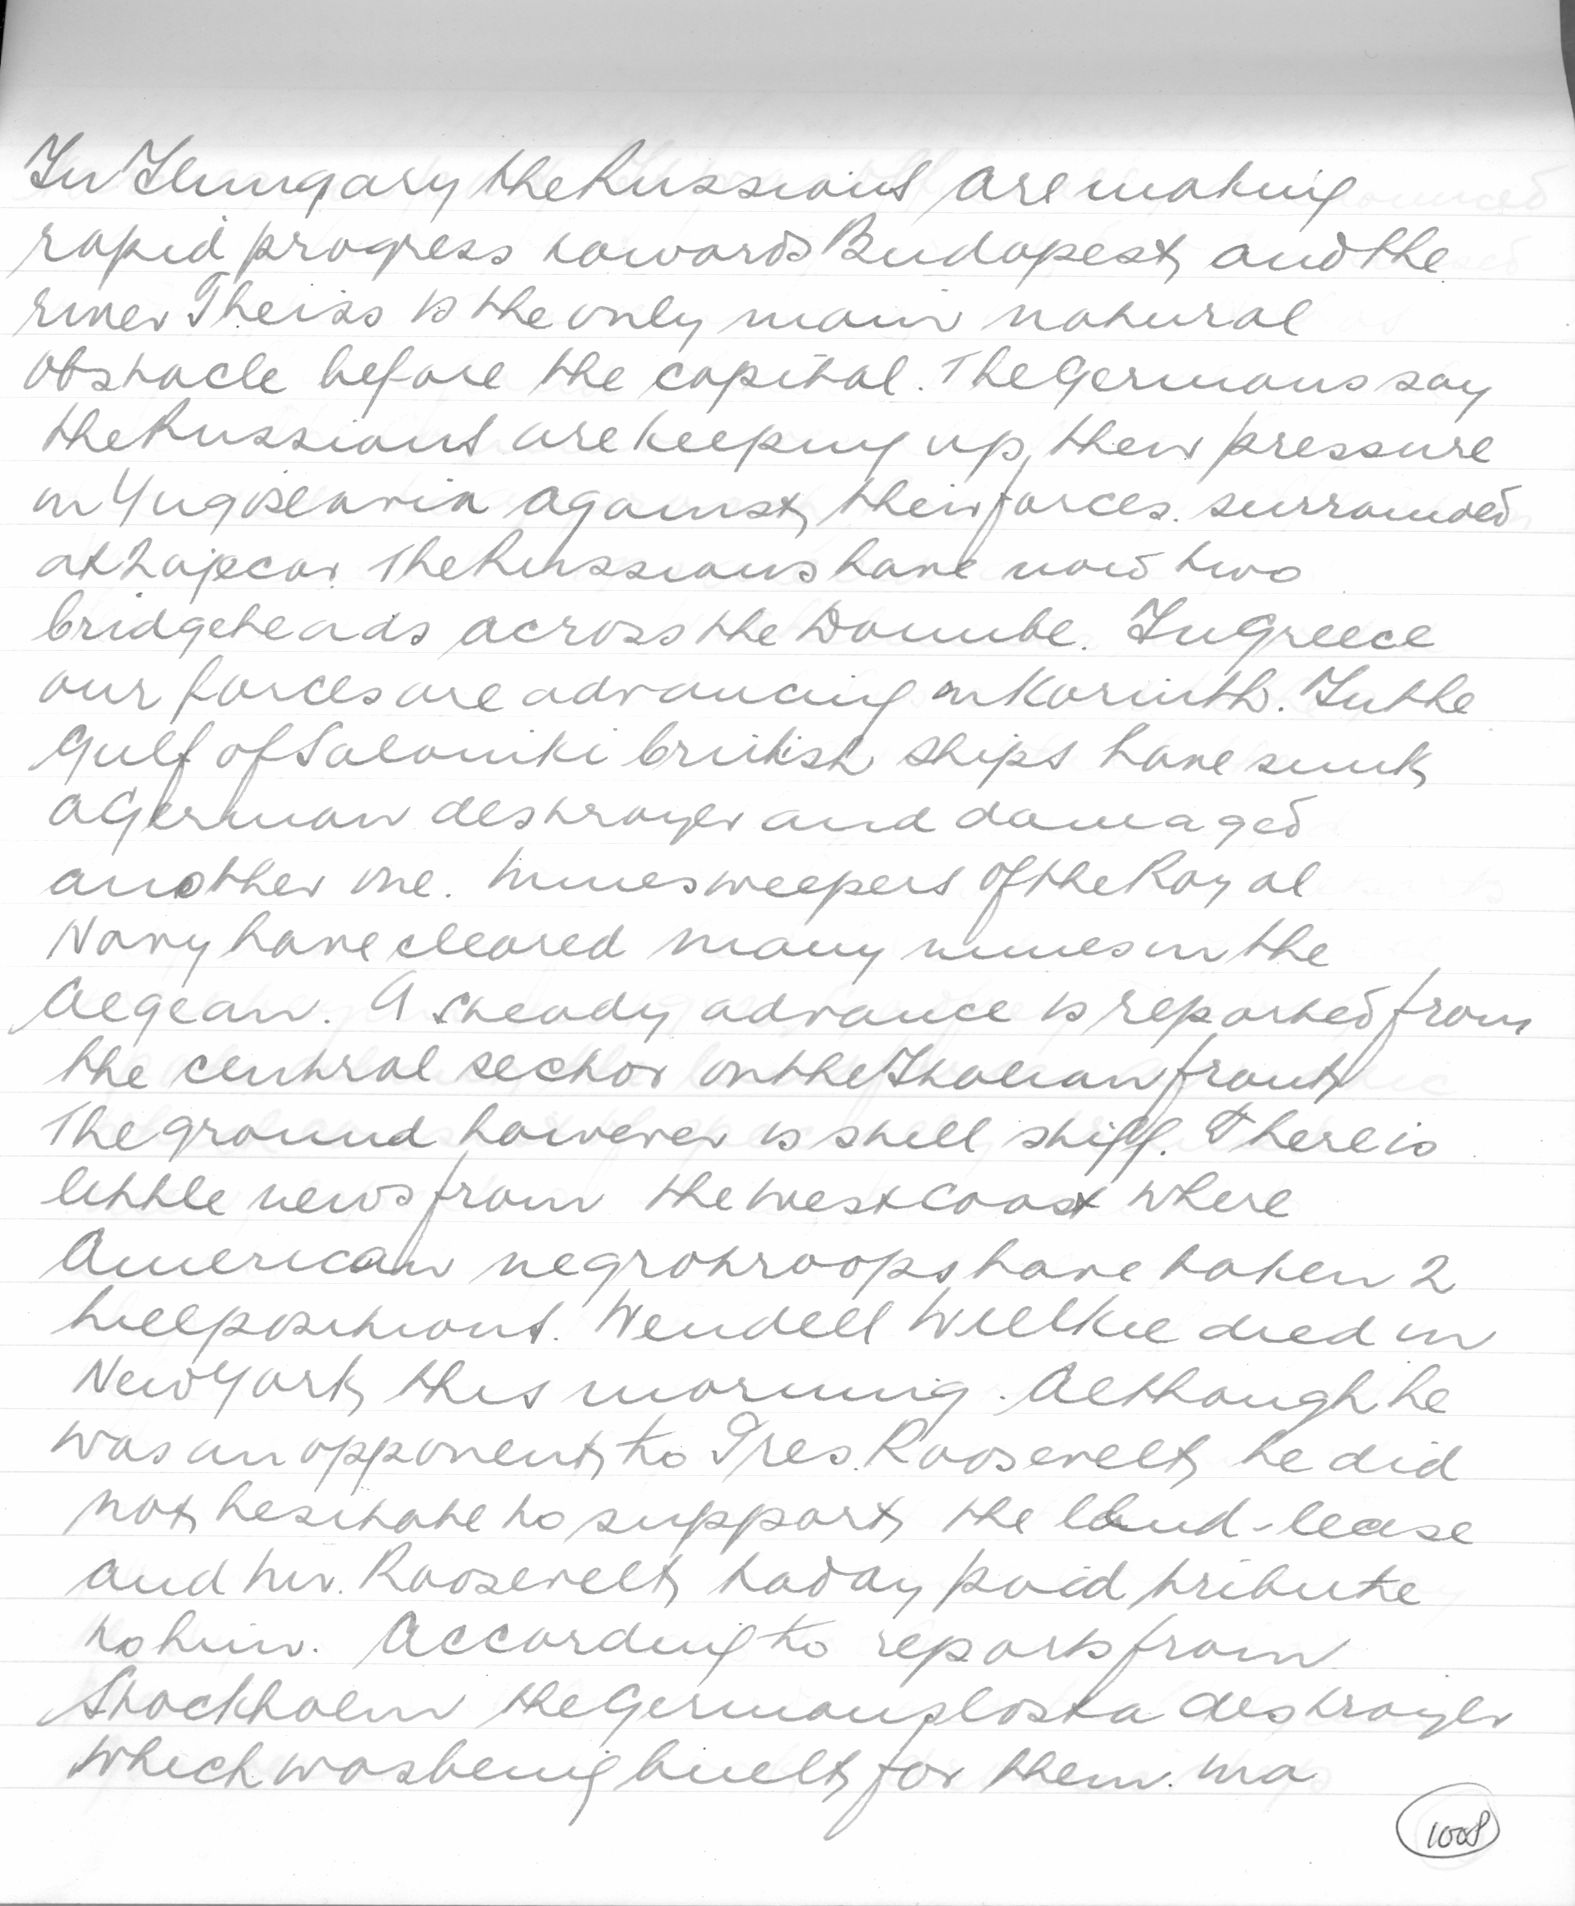 In Hungary the Russians are making
rapid progress towards Budapest, and the
river Theiss is the only main natural
obstacle before the capital. The Germans say
the Russians are keeping up their pressure
in Yugoslavia against their forces. surrounded
at Zajecar. The Russians have now two
bridgeheads across the Donube. In Greece
our forces are advancing on Korinth. In the
Gulf of Saloniki british ships have sunk
a German destroyer and damaged
another one. Minesweepers of the Royal
Navy have cleared many mines in the
Aegean. A steady advance is reported from
the central sector on the Italian front.
The ground however is still stiff. There is
little news from the west coast where
American negrotroops have taken 2
hillpositions. Wendell Willkie died in
New York this morning. Although he
was an opponent to Pres. Roosevelt, he did
not hesitate to support the lend-lease
and Mr. Roosevelt today paid tribute
to him. According to reports from
Stockholm the Germans lost a destroyer
which was being built for them. in a
1008